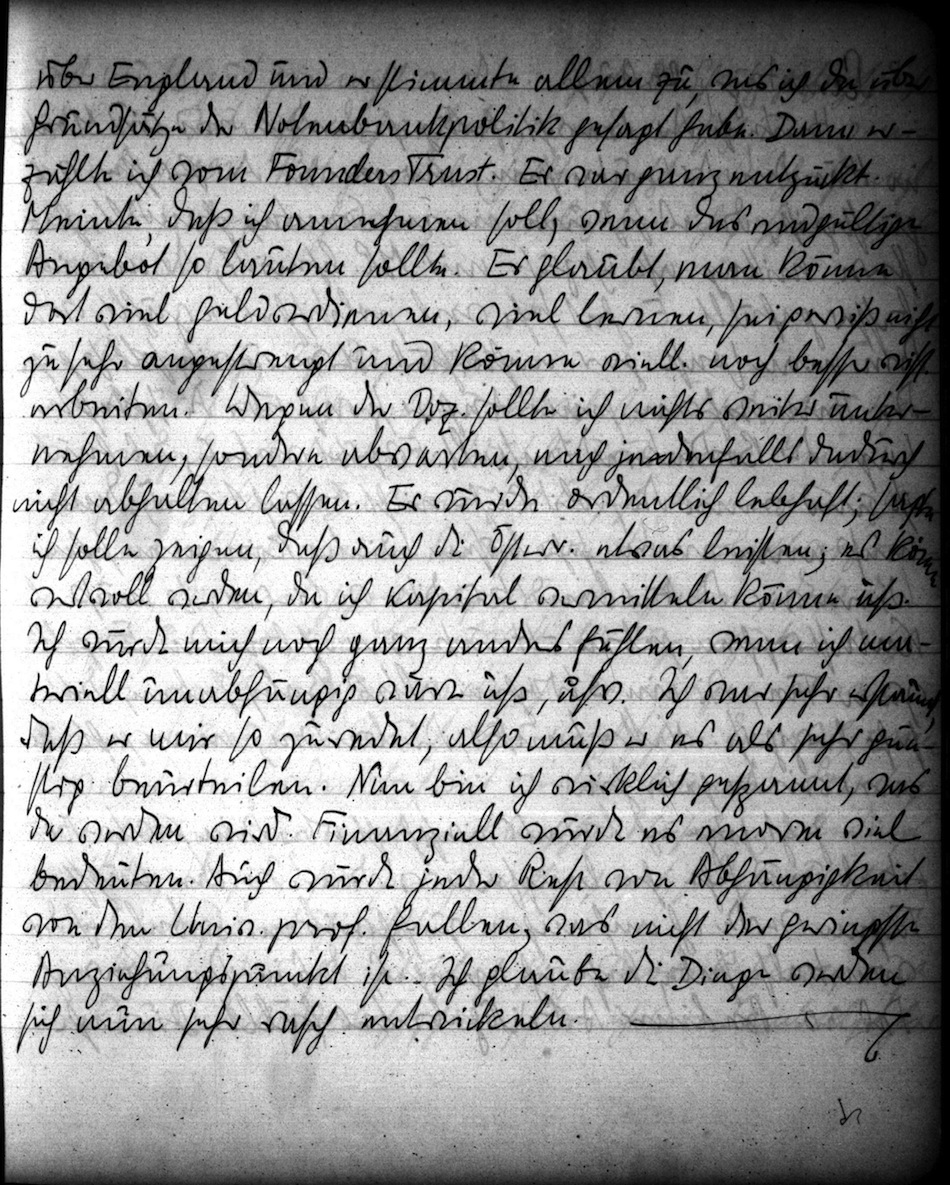 über England und er stimmte allem zu, was ich da über
Grundsätze der Notenbankpolitik gesagt habe. Dann er-
zählte ich vom Founders Trust. Er war ganz entzückt.
Meinte, daß ich annehmen soll, wenn das endgültige
Angebot so lauten sollte. Er glaubt, man könne
dort viel Geld verdienen, viel lernen, sei gewiß nicht
zu sehr angestrengt und könne viell. noch besser wiss.
arbeiten. Wegen der Doz. sollte ich nichts weiter unter-
nehmen, sondern abwarten, mich jedenfalls dadurch
nicht abhalten lassen. Er wurde ordentlich lebhaft; sagte
ich solle zeigen, daß auch die Österr. etwas leisten; es könne
wertvoll werden, da ich Kapital vermitteln könne usf.
Ich würde mich noch ganz anders fühlen, wenn ich ma-
teriell unabhängig wäre usf, usw. Ich war sehr erstaunt,
daß er mir so zuredet, also muß er es als sehr gün-
stig beurteilen. Nun bin ich wirklich gespannt, was
da werden wird. Finanziell würde es enorm viel
bedeuten. Auch würde jeder Rest von Abhängigkeit
von den Univ. prof. fallen, was nicht der geringste
Anziehungspunkt ist. Ich glaube die Dinge werden
sich nun sehr rasch entwickeln.